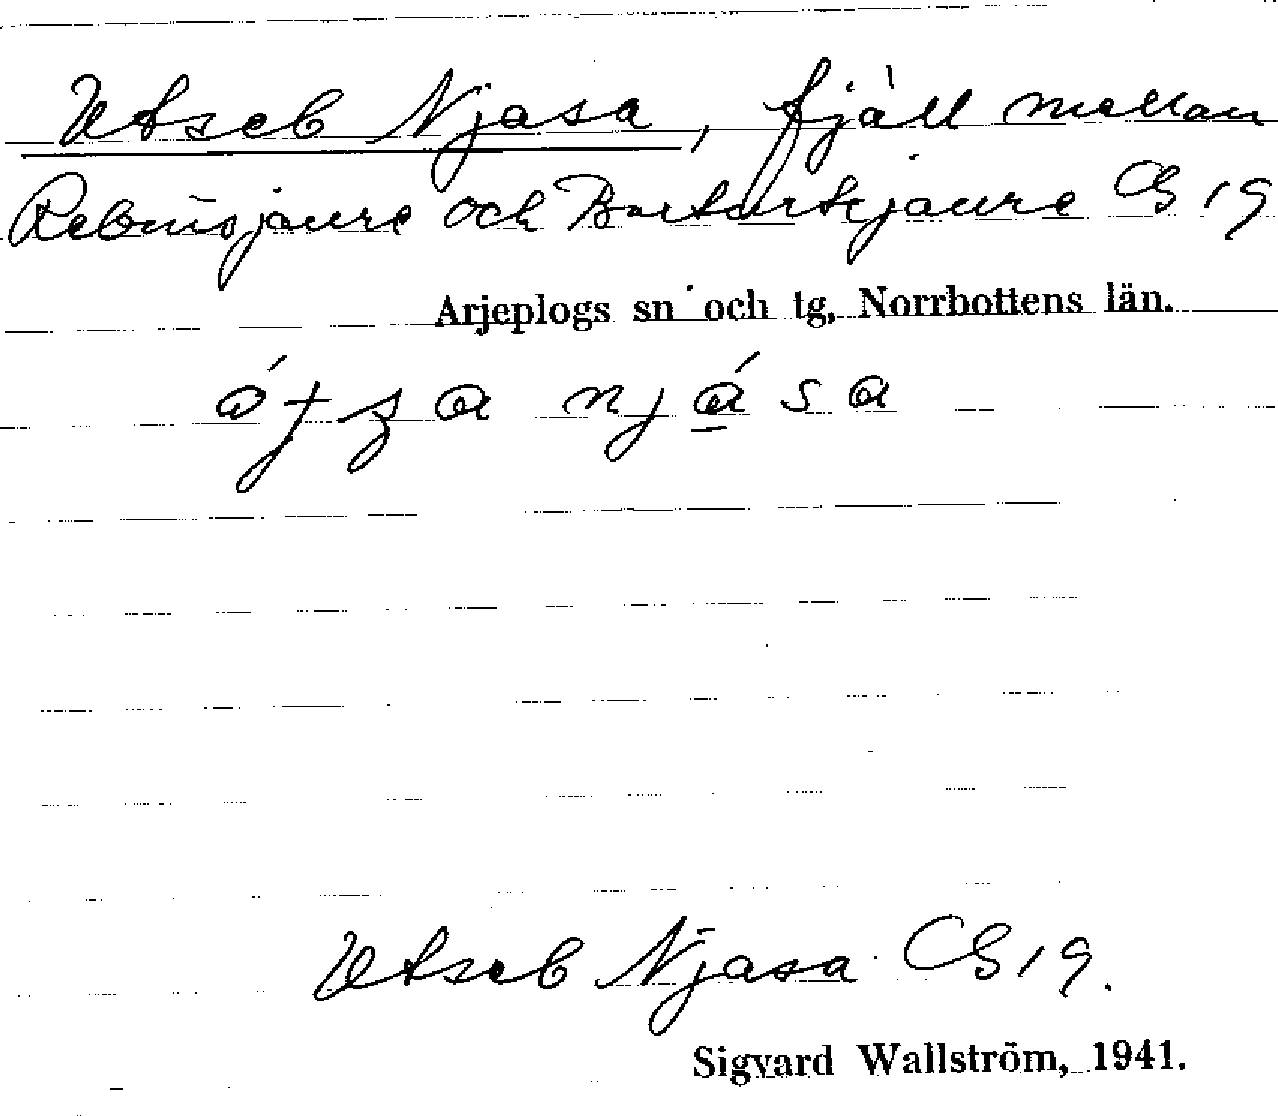 Utseb Njasa, fjäll mellan
Rebnisjaure och Bartaskjaure CS 19
Arjeplogs sn och tg, Norrbottens län.
njása
Utseb Njasa CS 19.
Sigvard Wallström, 1941.